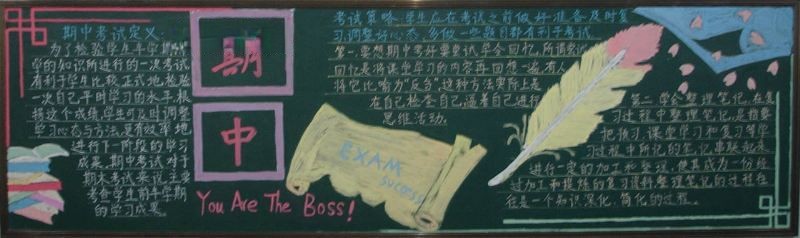 期中考试定义:
为了检验学生半学期所
学的知识所进行的一次考试,
有利于学生比较正式地检验
一次自己平时学习的水平,根
据这个成绩,学生可及时调整
学习心态与方法,更有效率地
进行下一阶段的学习
成果。期中考试对于
期末考试来说主要
考查学生前半学期
的学习成果。
期
中
You Are The Boss!
EXAM
success
考试策略:学生应在考试之前做好准备及时复
习,调整好心态,多做一些题目都有利于考试。
第一,要想期中考好要尝试学会回忆,所谓尝试
回忆是将课堂学习的内容再回想一遍,有人
将它比喻为"反刍"。这种方法实际上是
在自己检查自己,逼着自己进行
思维活动。
第二,学会整理笔记,在复
习过程中整理笔记,是指要
把预习,课堂学习和复习等学
习过程中所记的笔记串联起来
进行一定的加工和整理,使其成为一份经
过加工和提炼的复习资料整理笔记的过程往
往是一个知识深化,简化的过程。